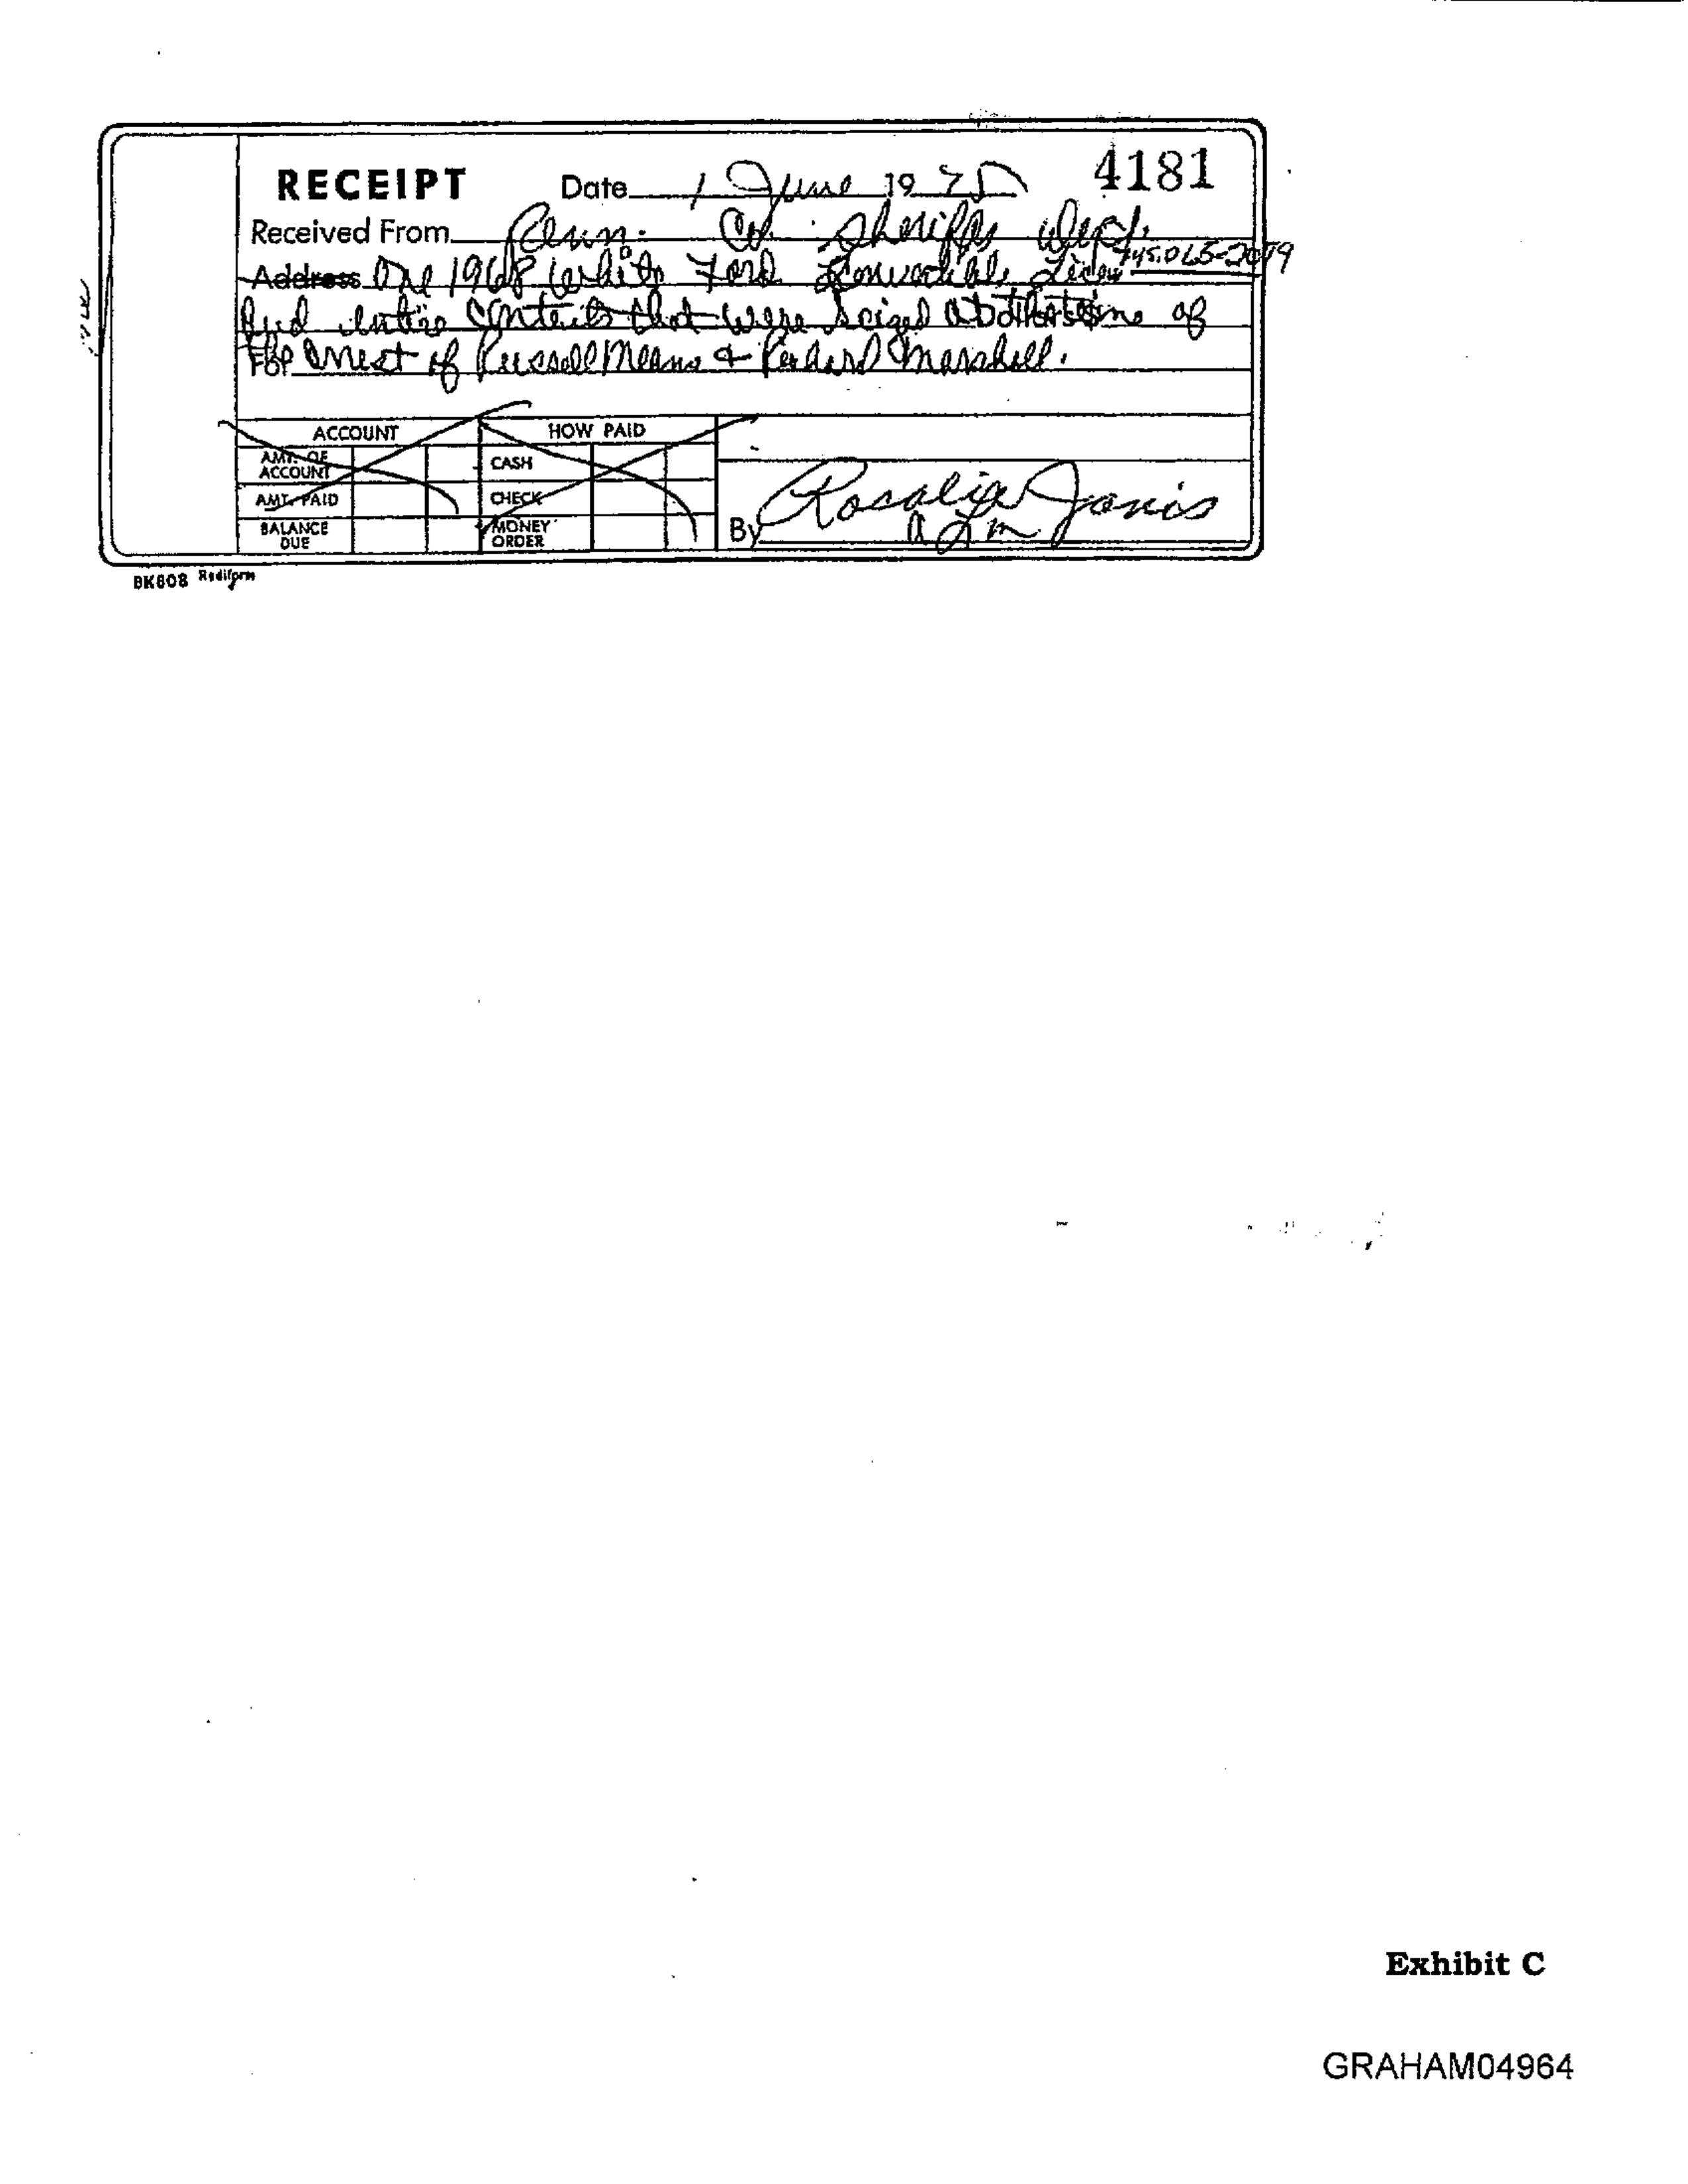 RECEIPT Date 1 June 19 75 4181
Received From Penn. Co. Sheriffs Dept.
Address One 1968 White Ford Convertible 745.065-2079
And entire Contents that were Seized at the time of
For arrest of Russell Means & Richard Marshall.
ACCOUNT HOW PAID
AMT. OF ACCOUNT CASH
AMT. PAID CHECK
BALANCE DUE MONEY ORDER
By Rosalie Janis
BK808 Rediform
Exhibit C
GRAHAM04964